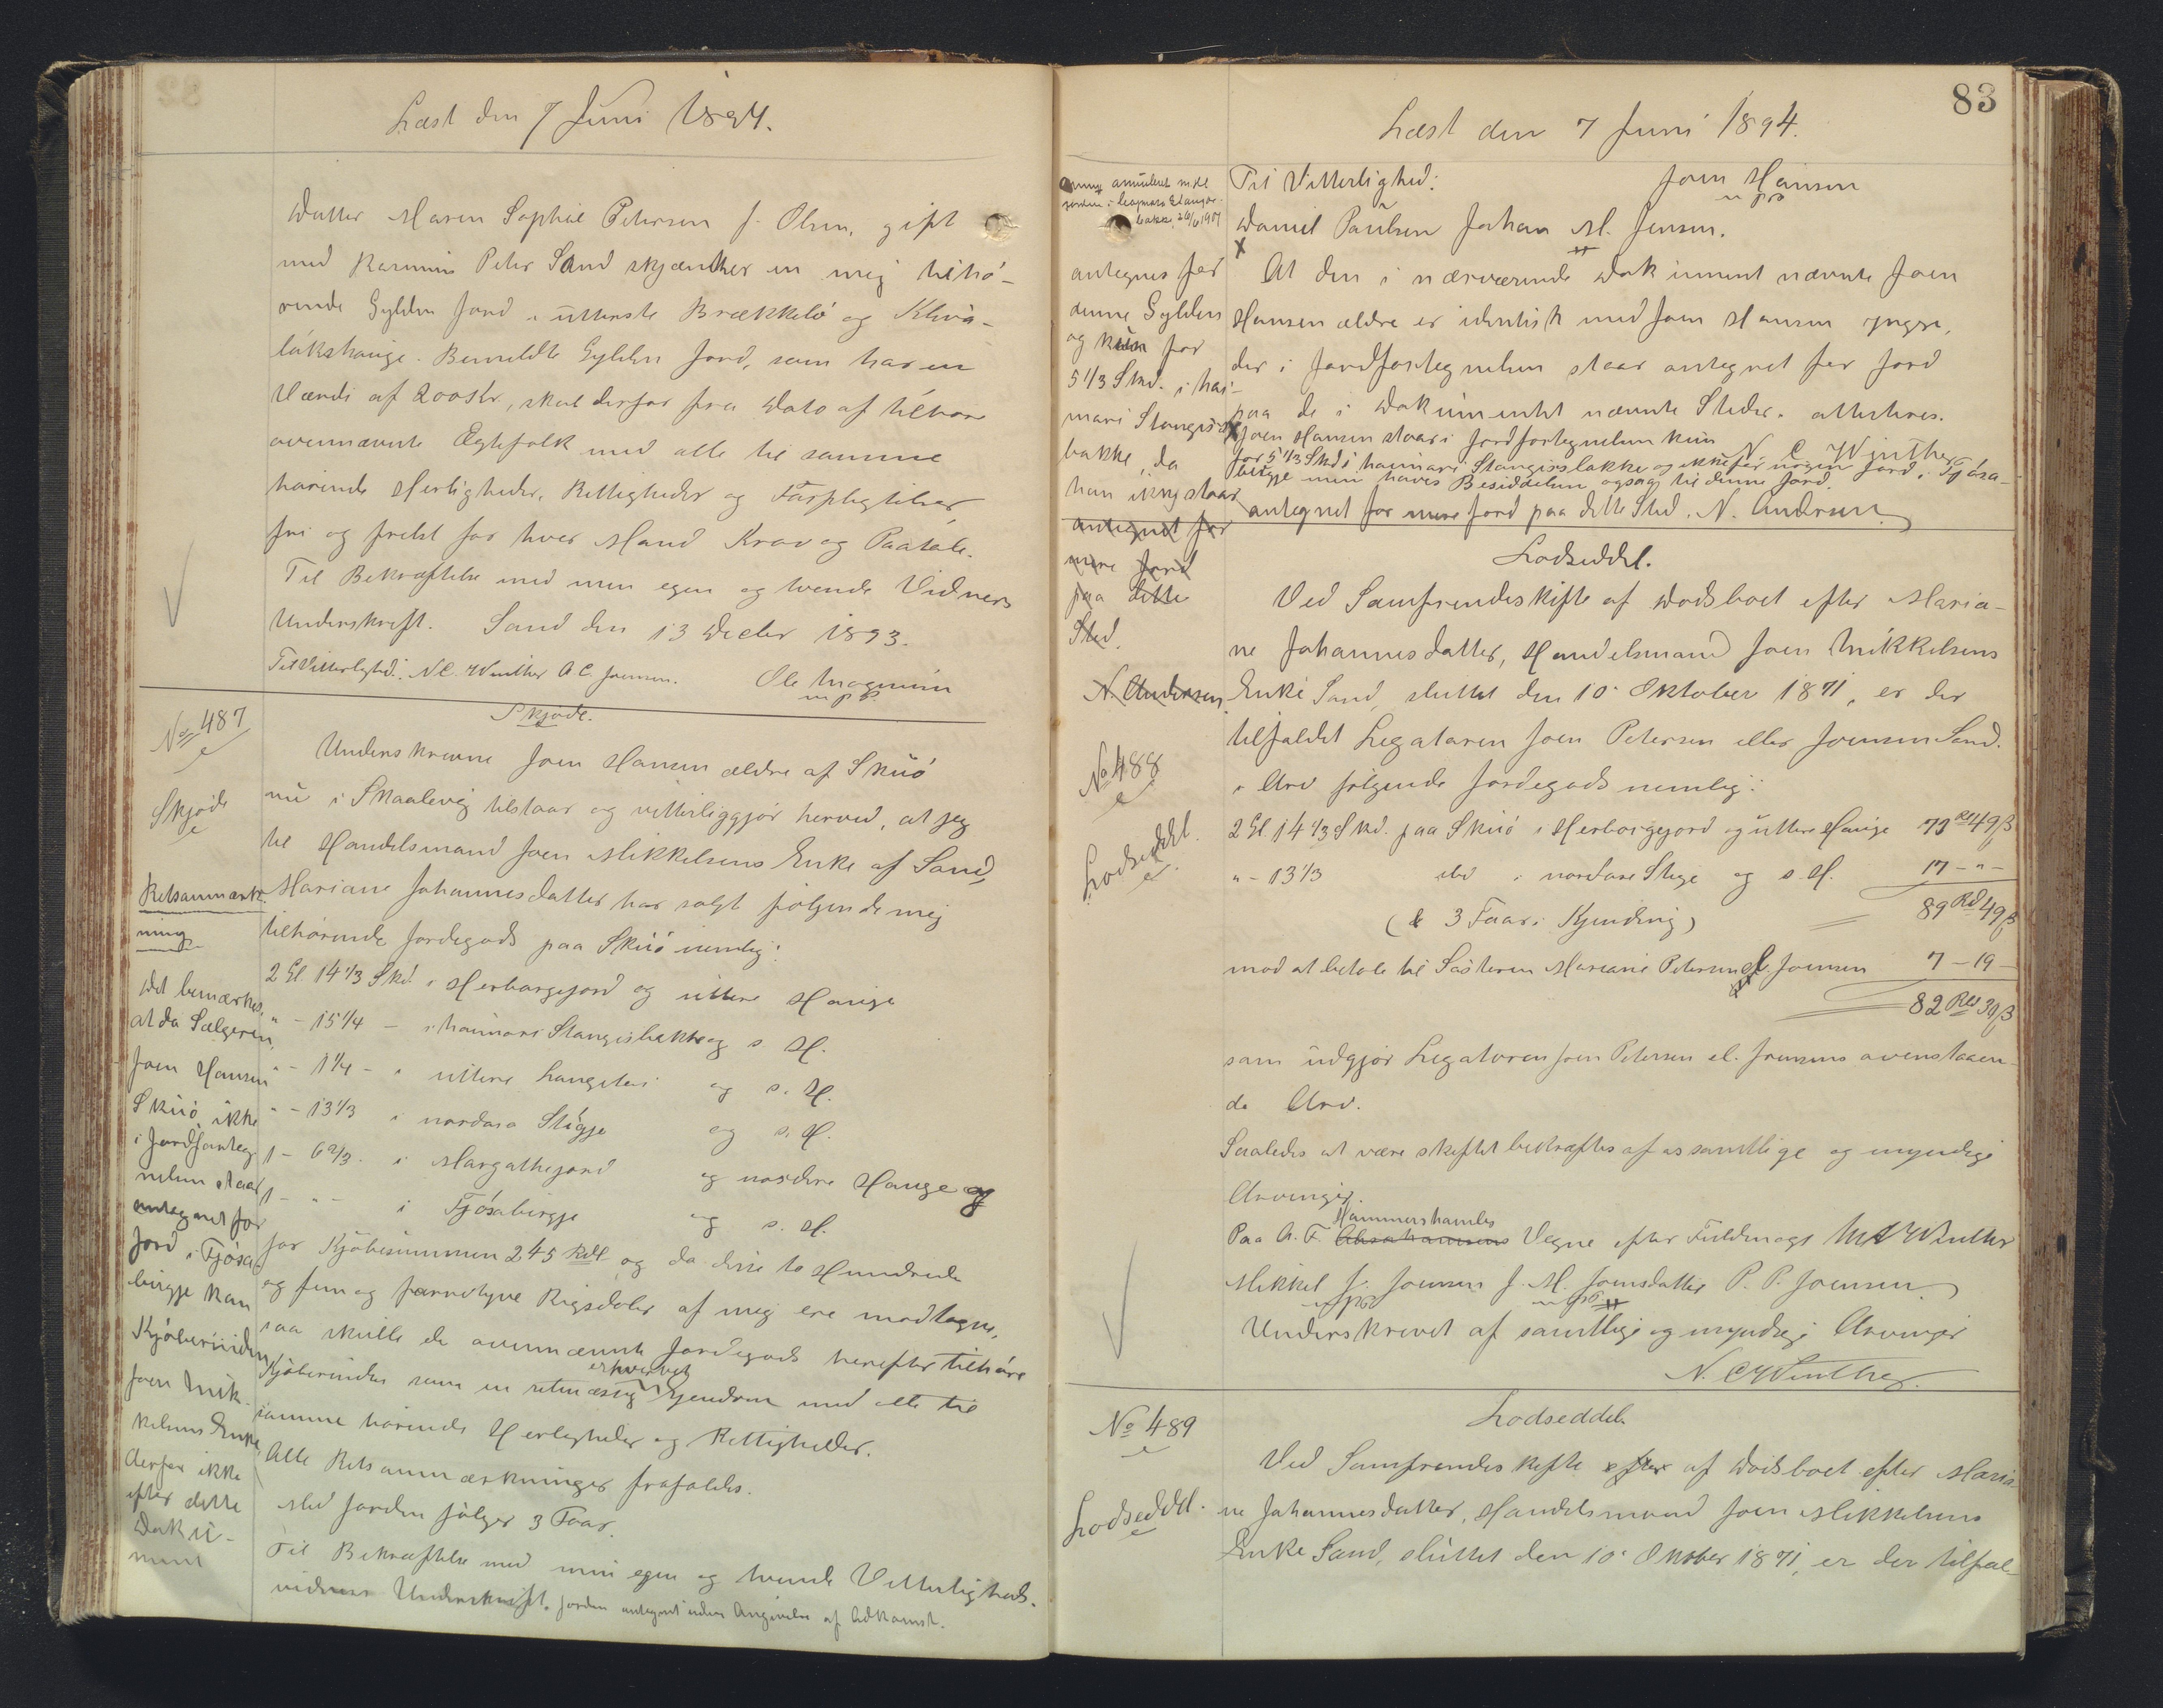 Læst den 7 Juni 1894.
Datter Maren Sophie Petersen f. Olsen, gift
med Rasmus Peter Sand skjænker en mig tilhö-
rende Gylden Jord i ütterste Brækkelö og
lákshauge. Bemeldte Gylden Jord, som har en
Værdi af 200 Kr, skal derfor fra Dato af tilhøre
ovennævnte Ægtefolk med alle til samme
hørende Herligheder, Rettigheder og Forpligtelser,
fri og frelst for hver Mand Krav og Paatale.
Til Bekræftelse med min egen og tvende Vidners
Underskrift. Sand den 13 Decbr 1893.
Til Vitterlighed: N.C. Winther A C. Joensen. Ole Magnusen
m p s.
No 487
Skjøde
Skjøde.
Underskrevne Joen Hansen ældre af Sküö
nü i Skaalevig tilstaar og vitterliggjör herved, at jeg
til Handelsmand Joen Mikkelsens Enke af Sand,
Mariane Johannesdatter har solgt følgende mig
tilhørende Jordegods paa Sküö nemlig:
2 Gl 14 1/3 Skd. i Herborgejord og üttere Hauge
" - 15 1/4 - i haimari Stangisbakke og s. H.
" - 1 1/4 - i üttere Langitei og s. H.
" - 13 1/3 i nordara Stígje og s. H.
1 - 6 2/3 i Margathejord og nordere Hauge og
1 - " - i Tjósabirgje og s. H.
for Kjöbesummen 245 Rdl og da disse to Hundrede
og fem og førretyve Rigsdaler af mig ere modtagne,
saa skulle de ovennævnte Jordegods herefter tilhøre
Kjöberinden som en retmæssig erhvervet Ejendom med alle til
samme hørende Herligheder og Rettigheder.
Alle Retsanmærkninger frafaldes.
Med Jorden følger 3 Faar.
Til Bekræftelse med min egen og tvende Vitterligheds-
vidners Underskrift. Jorden antegnet uden Angivelse af Adkomst.
Retsanmærk-
ning
Det bemærkes,
at da Sælgeren,
Joen Hansen
Sküö, ikke
i Jordforteg
nelsen staar
antegnet for
Jord i Tjósa
birgje kan
Kjöberinden
Joen Mik-
kelsens Enke
derfor ikke
efter dette
Dokü-
ment
83
Læst den 7 Juni 1894.
antegnes for
denne Gylden
og kün for
5 1/3 Skd. i hai-
mari Stangis
bakke, da
han ikke staar
antegnet for
mere Jord
paa dette
Sted.
N. Andersen
Til Vitterlighed: Joen Hansen
m p s
Daniel Paülsen Johan M. Jensen.
At den i nærværende Dokument nævnte Joen
Hansen ældre er identisk med Joen Hansen yngre,
der i Jordfortegnelsen staar antegnet for Jord
paa de i Dokümentet nævnte Steder. attesteres.
N C Winther
Joen Hansen staar i Jordfortegnelsen kün
for 5 1/3 Skd i haimari Stangisbakke og ikke for nogen Jord i Tjósa-
birgje men haves Besiddelsen ogsaa til denne Jord.
antegnet for mere Jord paa dette Sted. N. Andersen
No 488
Lodseddel.
Lodseddel.
Ved Samfrendeskifte af Dødsboet efter Maria-
ne Johannesdatter, Handelsmand Joen Mikkelsens
Enke Sand, sluttet den 10 Oktober 1871, er der
tilfaldet Legataren Joen Petersen eller Joensen Sand.
i Arv følgende Jordegods nemlig:
2 Gl 14 1/3 Skd. paa Sküö i Herborgejord og üttere Hauge 72 Rd 49 β
" - 13 1/3 ibd i nordare Stige og s. H. 17 - " -
(& 3 Faar i Kjending) 89 Rd 49 β
mod at betale til Søsteren Mariane Petersen el. Joensen 7 - 19 -
82 Rd 30 β
som üdgjør Legataren Joen Petersen el. Joensens ovenstaaen-
de Arv.
Saaledes at være skiftet bekræftes af os samtlige og myndige
Arvinger.
Hammershaimbs
Paa A. F. Absahamsens Vegne efter Fuldmagt N C Winther
Mikkel J. Joensen J. M. Joensdatter P. P. Joensen
Underskrevet af samtlige og myndige Arvinger
N. C Winther.
No 489
Lodseddel.
Lodseddel
Ved Samfrendeskifte efter af Dødsboet efter Maria
ne Johannesdatter, Handelsmand Joen Mikkelsens
Enke Sand, slüttet den 10 Oktober 1871, er der tilfal-